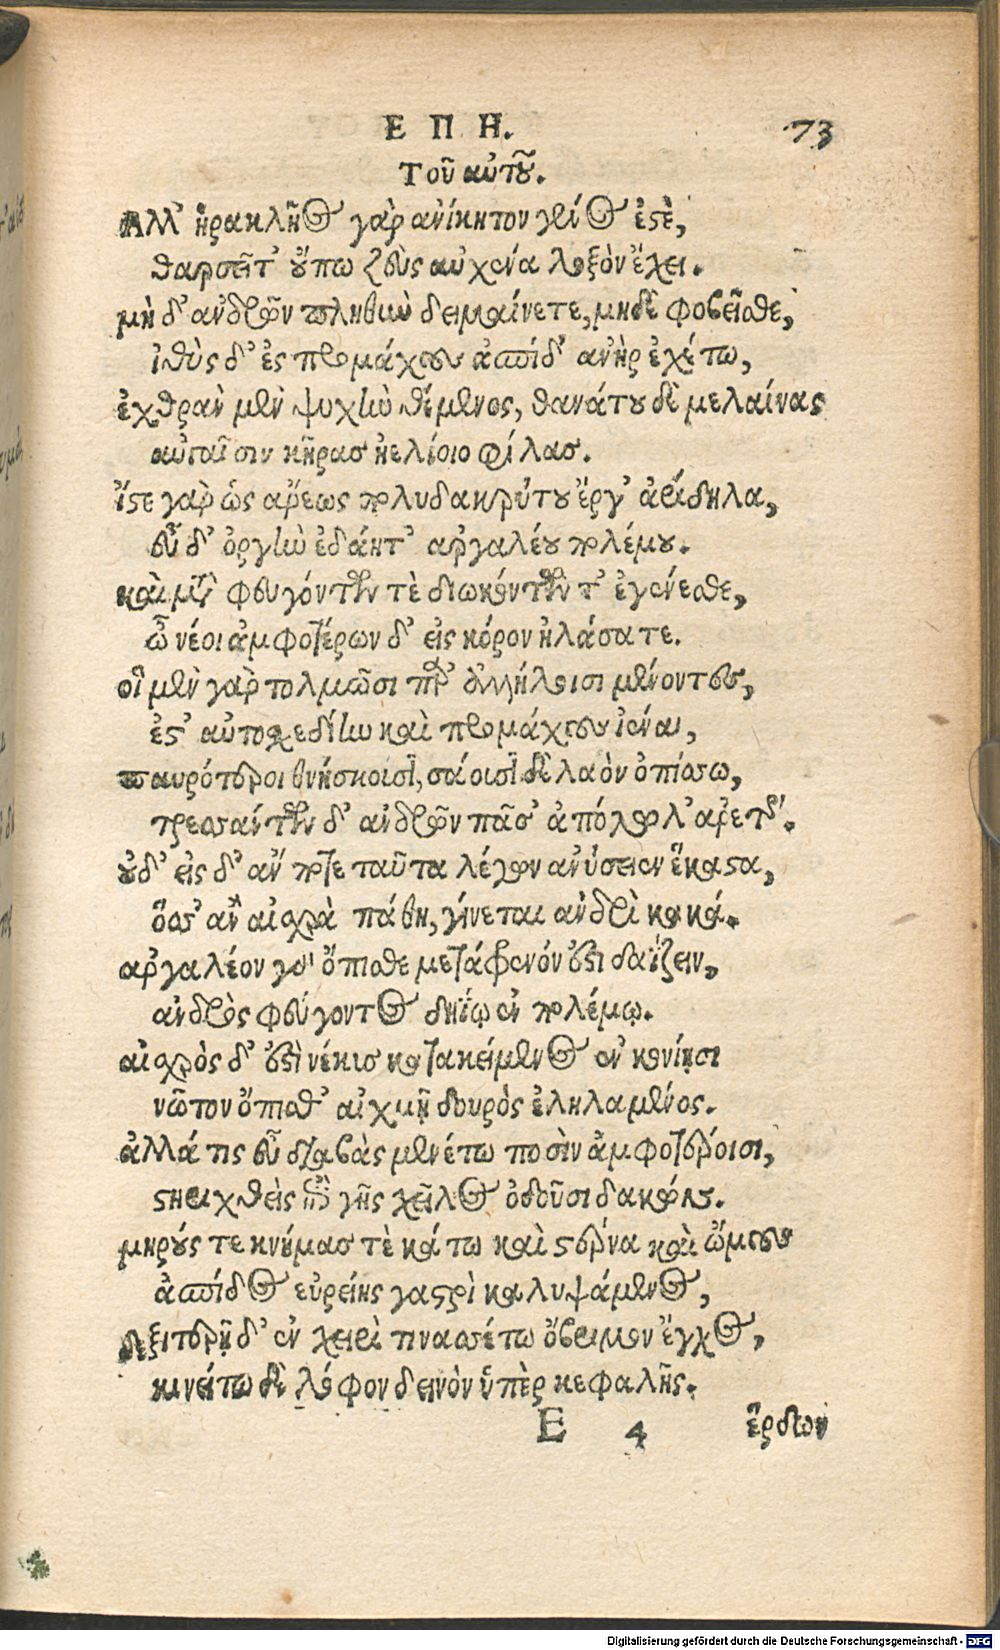 ΕΠΗ. 73
Τοῦ αὐτοῦ.
Αλλ' ἡρακλῆος γὰρ ἀνίκητον γένος ἐστὲ,
θαρσεῖτ' οὔπω ζεὺς αὐχένα λοξὸν ἔχει.
μὴ δ' ἀνδρῶν πληθὺν δειμαίνετε, μηδὲ φοβεῖσθε,
ἰθὺς δ' ἐς προμάχους ἀσπίδ' ἀνὴρ ἐχέτω,
ἐχθρὰν μὲν ψυχὴν θέμενος, θανάτου δὲ μελαίνας
αὐγαῖσιν κῆρας ἠελίοιο φίλας.
ἴστε γὰρ ὡς ἄρεως πολυδακρύτου ἔργ' ἀρίδηλα,
εὖ δ' ὀργὴν ἐδάητ' ἀργαλέου πολέμου.
καὶ μετὰ φευγόντων τὲ διωκόντων τ' ἐγένεσθε,
ὦ νέοι ἀμφοτέρων δ' εἰς κόρον ἠλάσατε.
οἳ μὲν γὰρ τολμῶσι παρ' ἀλλήλοισι μένοντες,
ἐς τ' αὐτοσχεδίην καὶ προμάχους ἰέναι,
παυρότεροι θνήσκουσι, σάουσι δὲ λαὸν ὀπίσσω,
τρεσσάντων δ' ἀνδρῶν πᾶσ' ἀπόλωλ' ἀρετή.
οὐδ' εἰς δ' ἄν ποτε ταῦτα λέγων ἀνύσειεν ἕκαστα,
ὅσσ' ἂν αἰσχρὰ πάθη, γίνεται ἀνδρὶ κακά.
ἀργαλέον γὰρ ὄπισθε μετάφρενόν ἐστι δαΐζειν,
ἀνδρὸς φεύγοντος δηΐῳ ἐν πολέμῳ.
αἰσχρὸς δ' ἐστὶ νέκυς κατακείμενος ἐν κονίῃσι
νῶτον ὄπισθ' αἰχμῇ δουρὸς ἐληλαμένος.
ἀλλά τις εὖ διαβὰς μενέτω ποσὶν ἀμφοτέροισι,
στηριχθεὶς ἐπὶ γῆς χεῖλος ὀδοῦσι δακών.
μηρούς τε κνήμας τὲ κάτω καὶ στέρνα καὶ ὤμους
ἀσπίδος εὐρείης γαστρὶ καλυψάμενος,
δεξιτερῇ δ' ἐν χειρὶ τινασσέτω ὄβριμον ἔγχος,
κινείτω δὲ λόφον δεινὸν ὑπὲρ κεφαλῆς.
E 4 ἔρδων
Digitalisierung gefördert durch die Deutsche Forschungsgemeinschaft - DFG